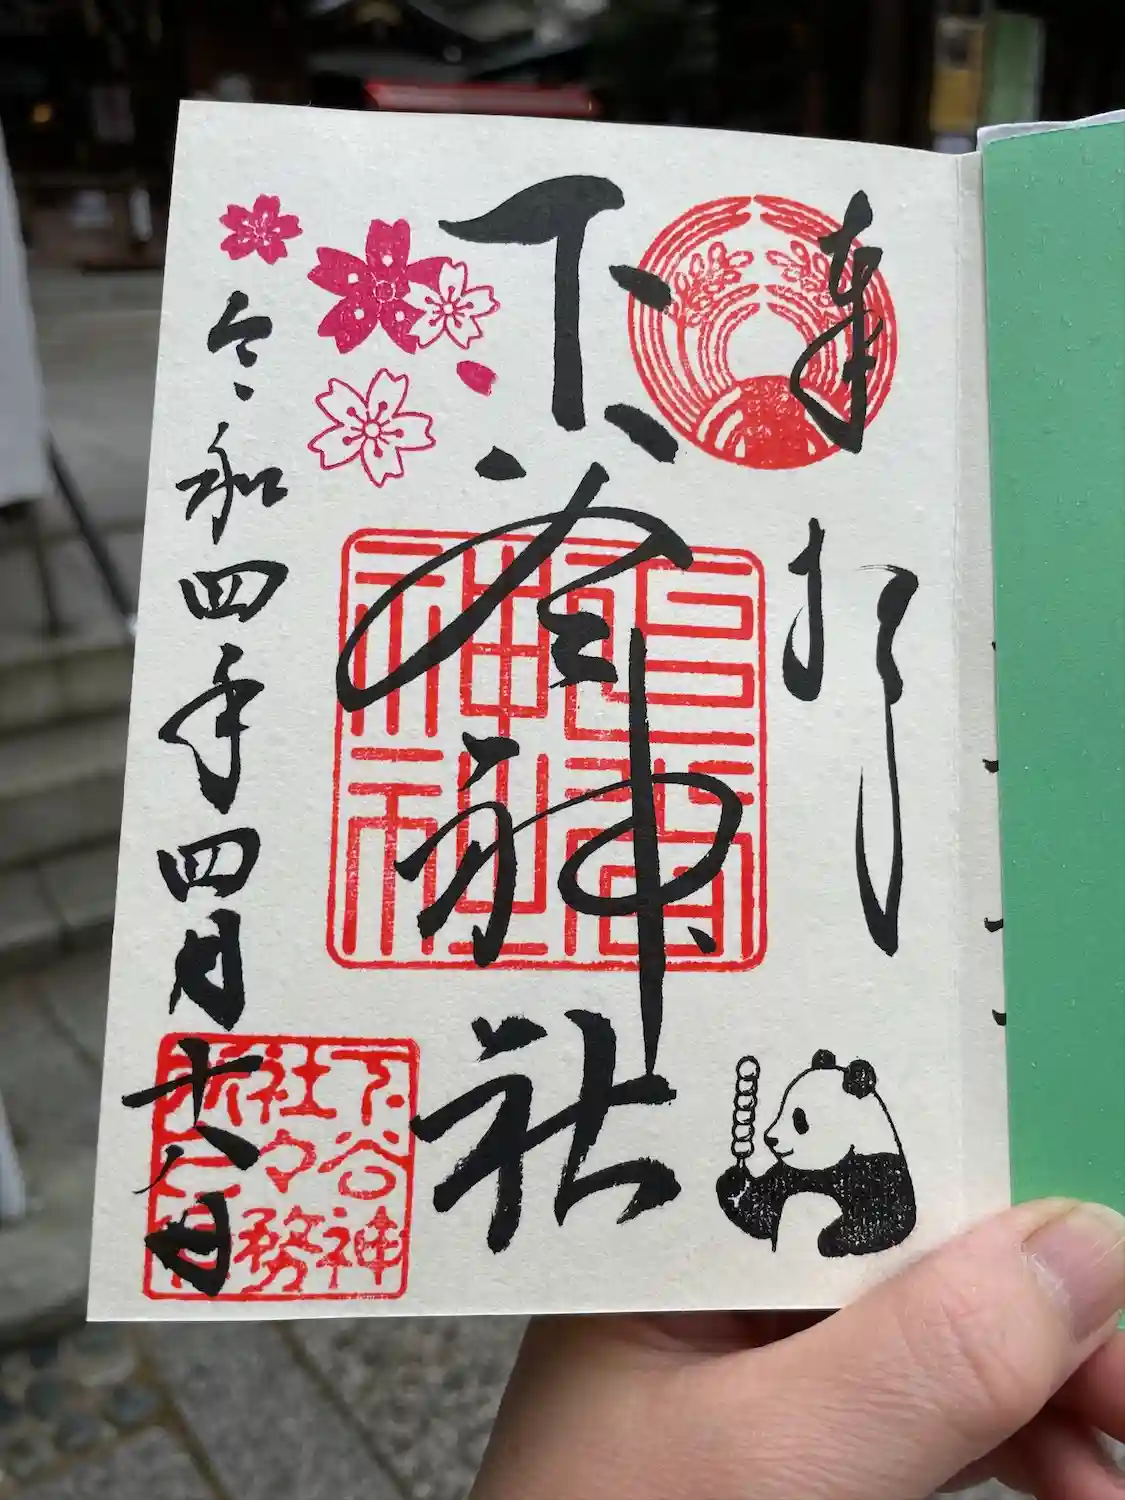 奉拝
下谷神社
下谷
神社
令和四年四月十八日
下谷神
社々務
所之印